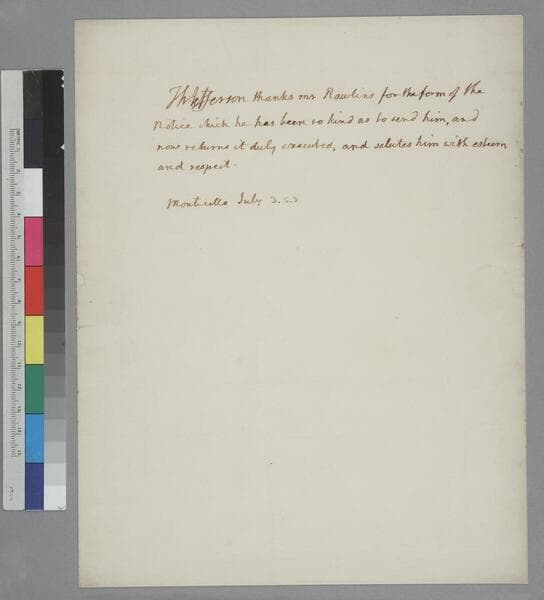 Th Jefferson thanks mr Rawlins for the form of the
Notice which he has been so kind as to send him, and
now returns it duly executed, and salutes him with esteem
and respect.
Monticello July 3. 23